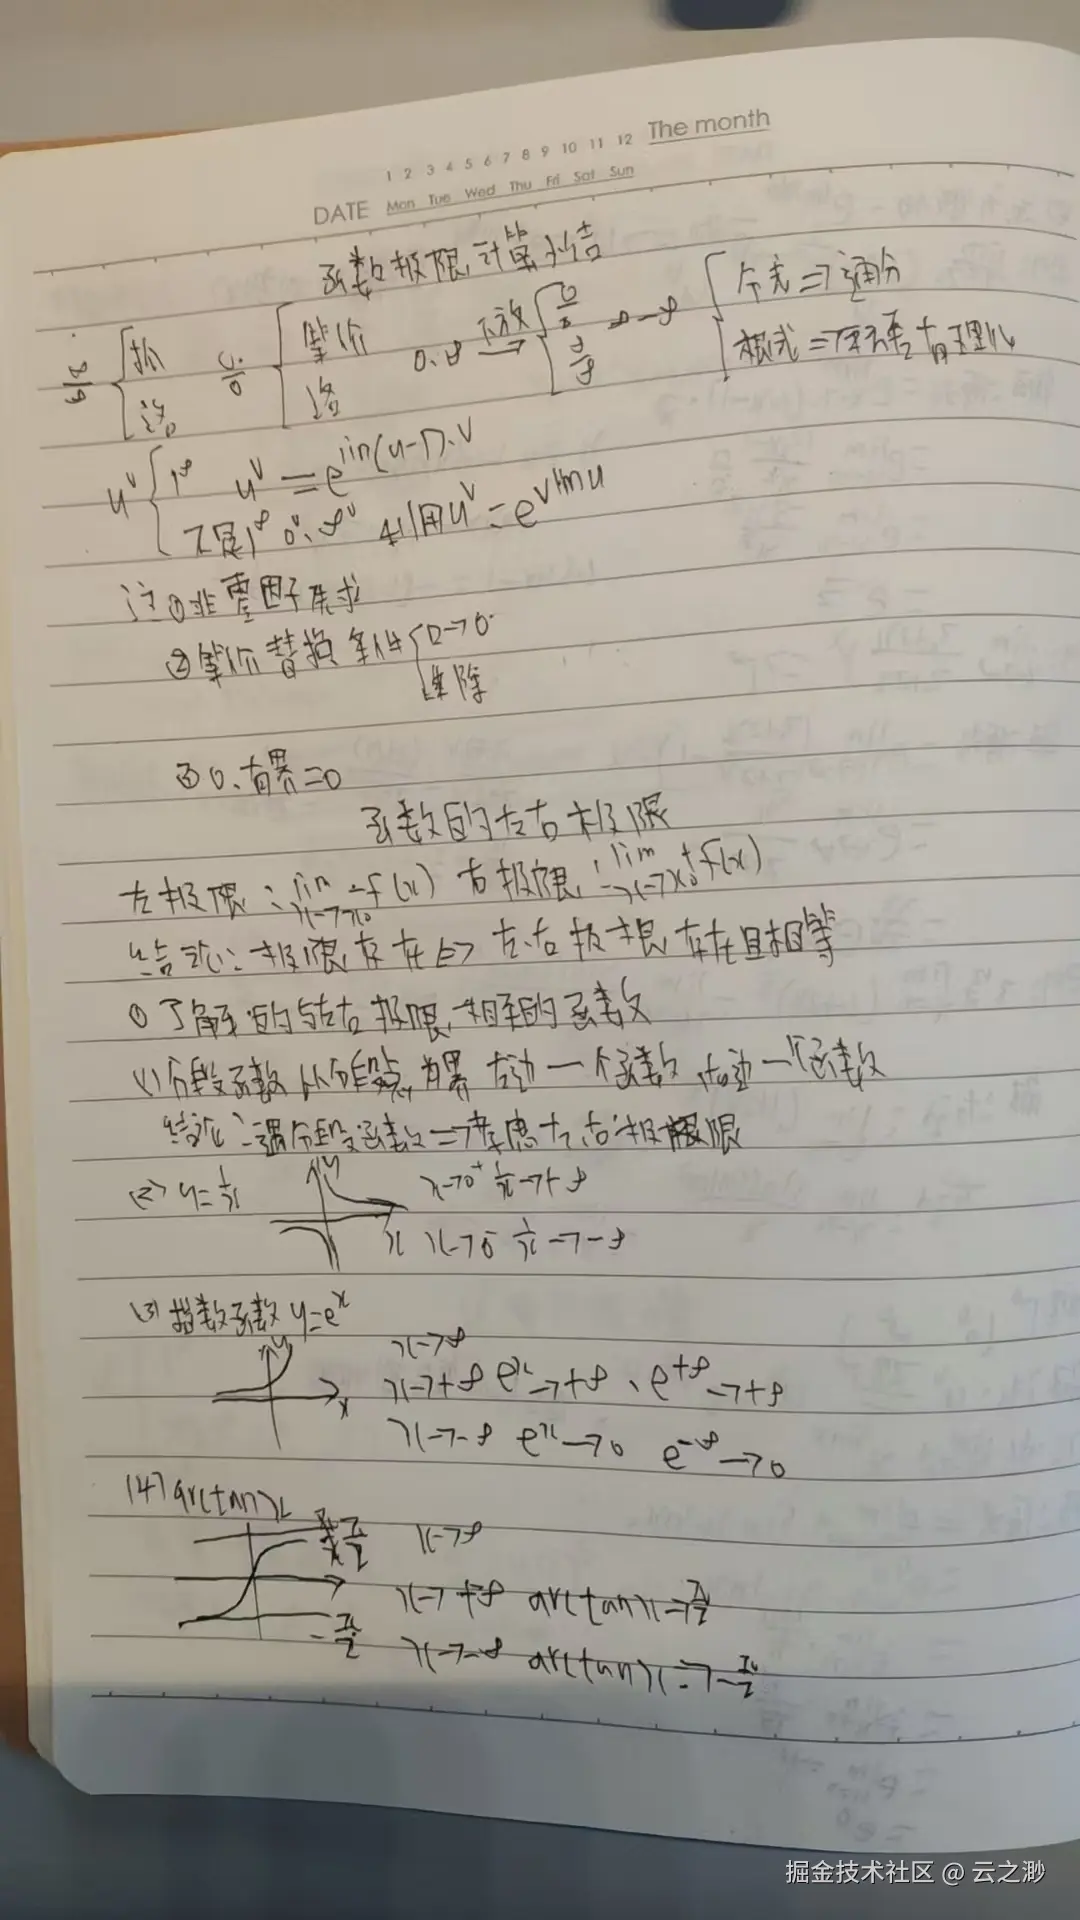 1 2 3 4 5 6 7 8 9 10 11 12 The month
DATE Mon Tue Wed Thu Fri Sat Sun
函数极限计算小结
∞/∞ { 抓 0/0 { 等价 0·∞ 下放→ { 0/0 ∞-∞ { 分式⇒通分
洛 ∞/∞ 根式⇒有理化
u^v { 1^∞ u^v = e^{lim(u-1)·v}
不是1^∞ 0^0、∞^0 利用u^v = e^{v ln u}
注①非零因子先求
②等价替换条件{ □→0
乘除
③0·有界=0
函数的左右极限
左极限:lim x→x0^- f(x) 右极限:lim x→x0^+ f(x)
结论:极限存在⇔左、右极限存在且相等
①了解的与左右极限相关的函数
(1)分段函数 以分段点为界 左边一个函数,右边一个函数
结论:遇分段函数⇒考虑左、右极限
(2) y=1/x y x→0^+ 1/x→+∞
x x→0^- 1/x→-∞
(3)指数函数 y=e^x
y x→∞
x x→+∞ e^x→+∞、e^{+∞}→+∞
x→-∞ e^x→0 e^{-∞}→0
(4) arctan x
π/2 x→∞
x→+∞ arctan x→π/2
-π/2 x→-∞ arctan x→-π/2
掘金技术社区 @ 云之渺